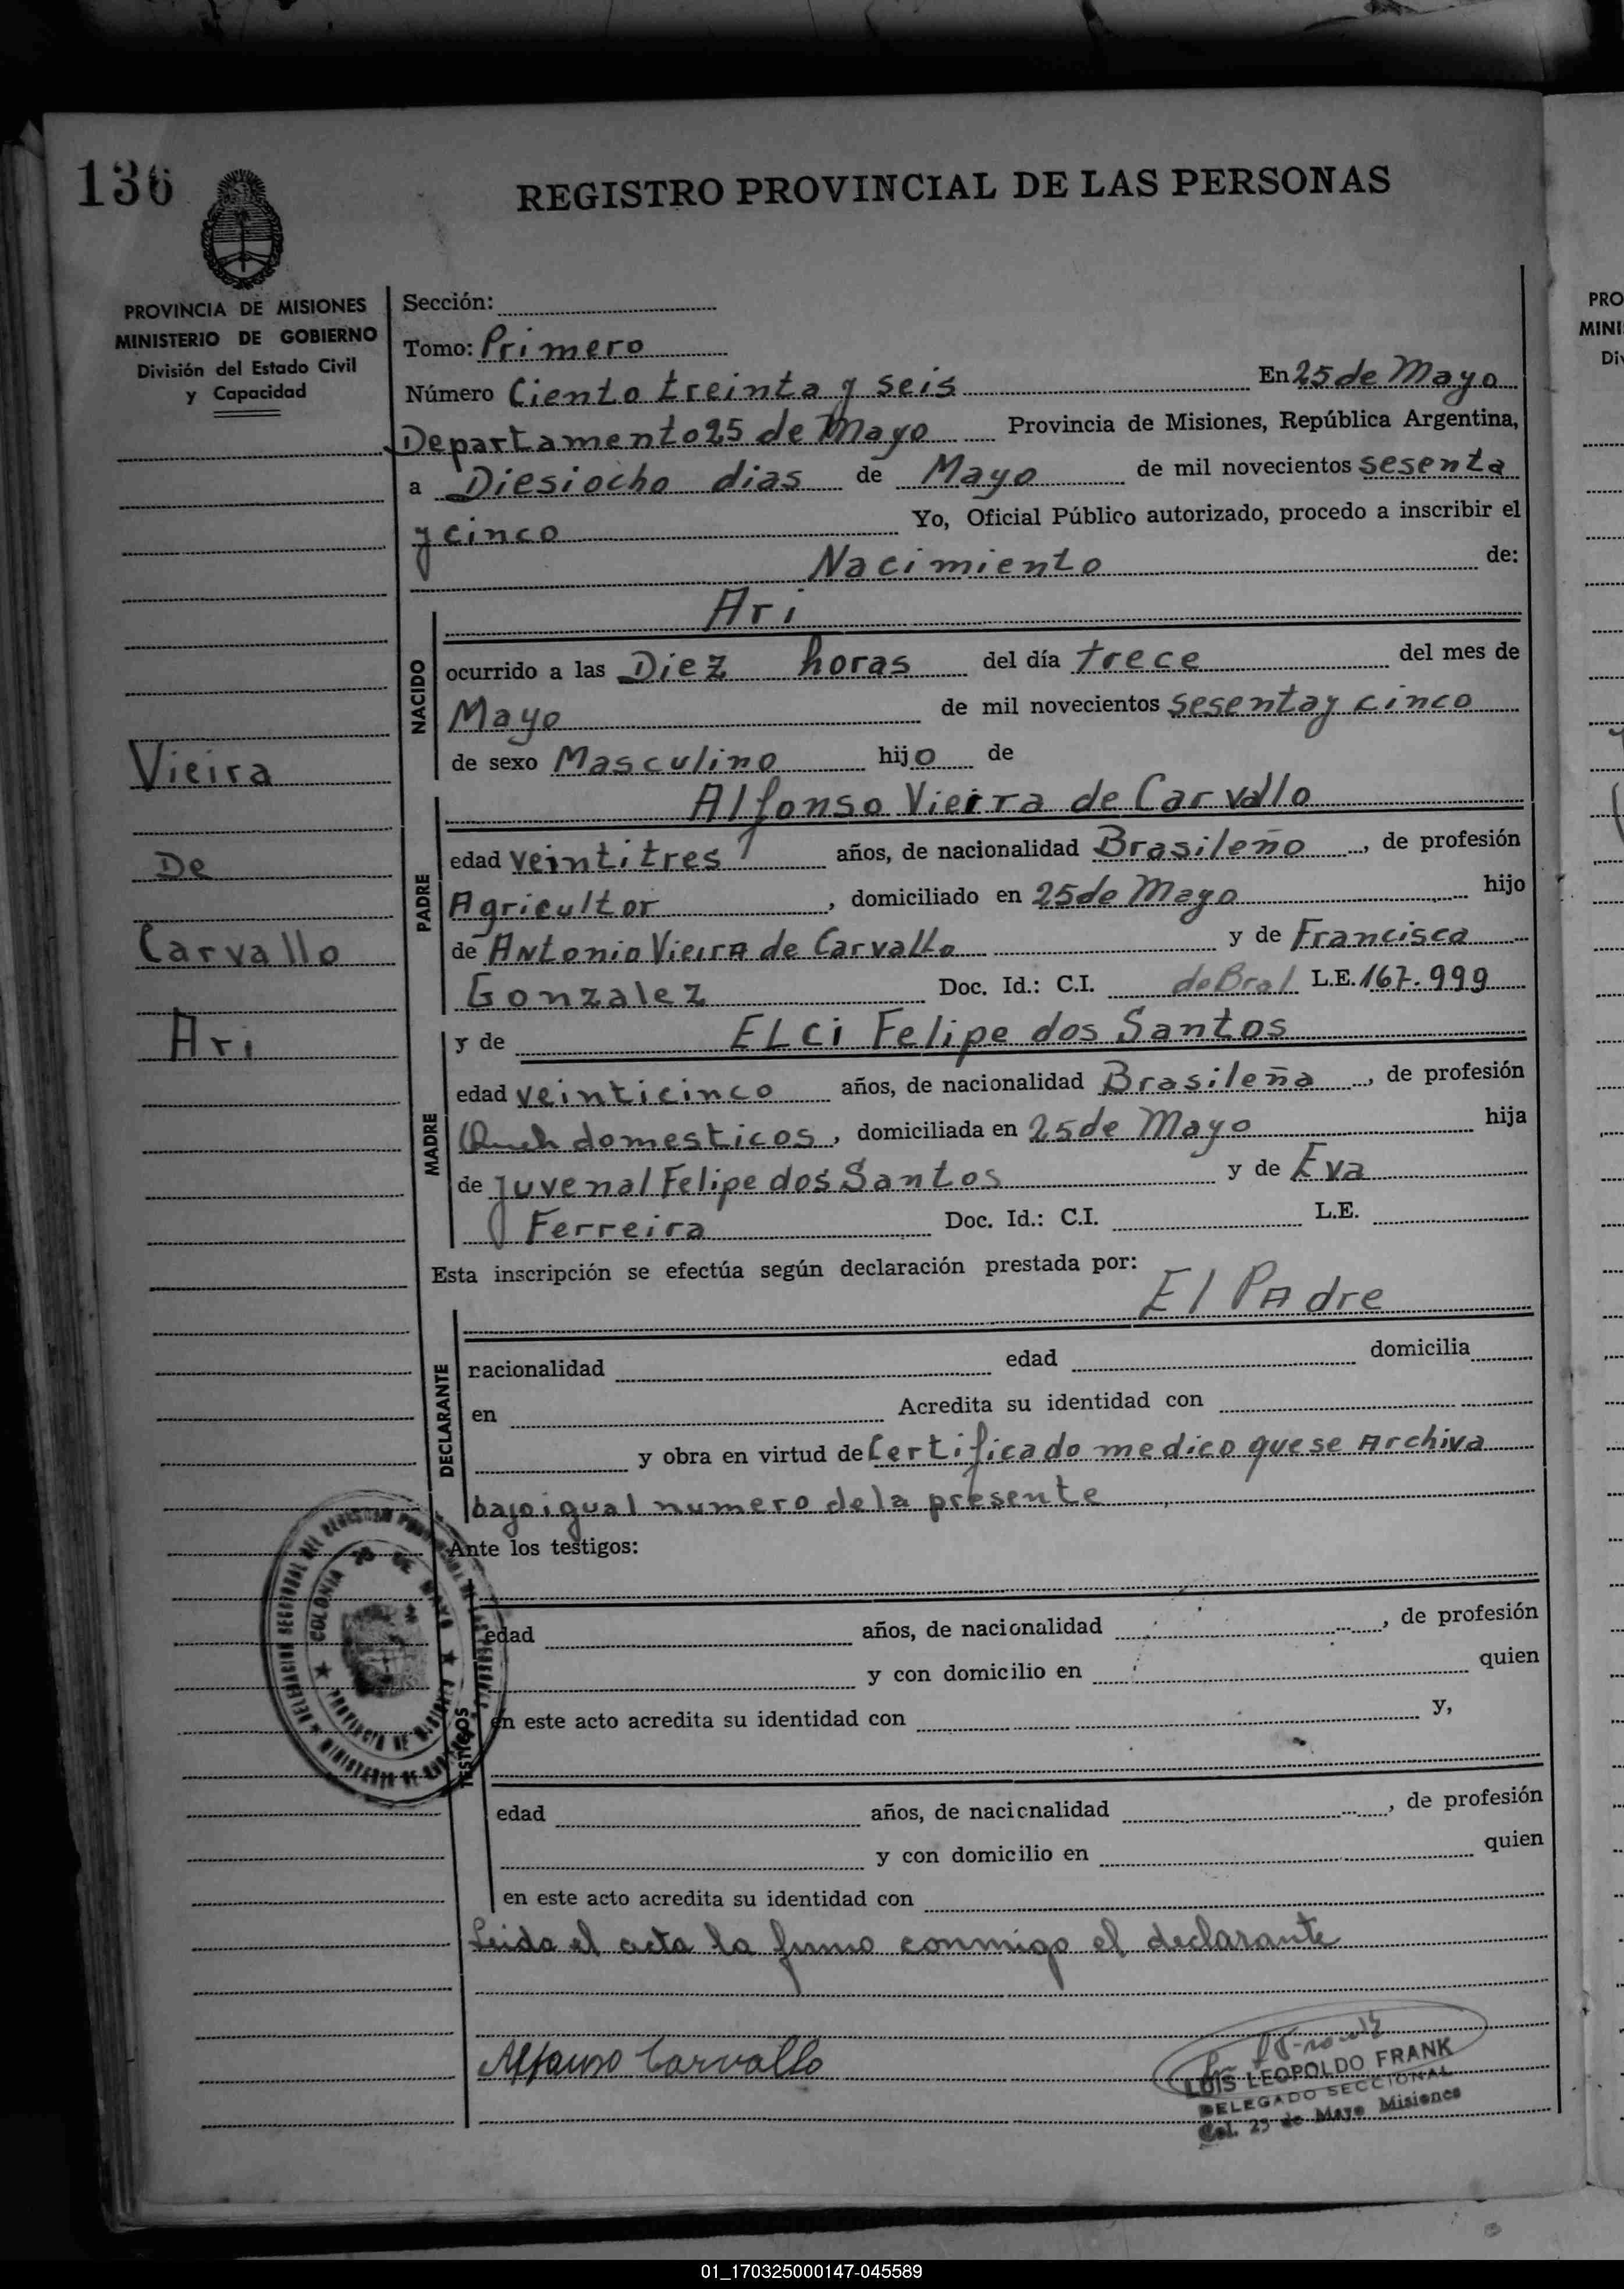 136
REGISTRO PROVINCIAL DE LAS PERSONAS
PROVINCIA DE MISIONES
MINISTERIO DE GOBIERNO
División del Estado Civil
y Capacidad
Sección:
Tomo: Primero
Número Ciento treinta y seis En 25 de Mayo
Departamento 25 de Mayo Provincia de Misiones, República Argentina,
a Diesiocho dias de Mayo de mil novecientos sesenta
y cinco Yo, Oficial Público autorizado, procedo a inscribir el
Nacimiento de:
Ari
NACIDO
ocurrido a las Diez horas del día trece del mes de
Mayo de mil novecientos sesenta y cinco
de sexo Masculino hijo de
Vieira
De
Carvallo
Ari
PADRE
Alfonso Vieira de Carvallo
edad veintitres años, de nacionalidad Brasileño, de profesión
Agricultor, domiciliado en 25 de Mayo hijo
de Antonio Vieira de Carvallo y de Francisca
Gonzalez Doc. Id.: C.I. L.E. 167.999
MADRE
y de ELci Felipe dos Santos
edad veinticinco años, de nacionalidad Brasileña, de profesión
Queh domesticos, domiciliada en 25 de Mayo hija
de Juvenal Felipe dos Santos y de Eva
Ferreira Doc. Id.: C.I. L.E.
Esta inscripción se efectúa según declaración prestada por:
El PAdre
DECLARANTE
nacionalidad edad domicilia
en Acredita su identidad con
y obra en virtud de Certificado medico que se Archiva
bajo igual numero de la presente
Ante los testigos:
TESTIGOS
edad años, de nacionalidad , de profesión
y con domicilio en quien
en este acto acredita su identidad con y,
edad años, de nacicnalidad , de profesión
y con domicilio en quien
en este acto acredita su identidad con
Leida el acta la firmo conmigo el declarante
Alfonso Carvallo
LUIS LEOPOLDO FRANK
DELEGADO SECCIONAL
Col. 25 de Mayo Misiones
COLONIA 25 DE MAYO
PROVINCIA DE MISIONES
PRO
MINI
Div
01_170325000147-045589